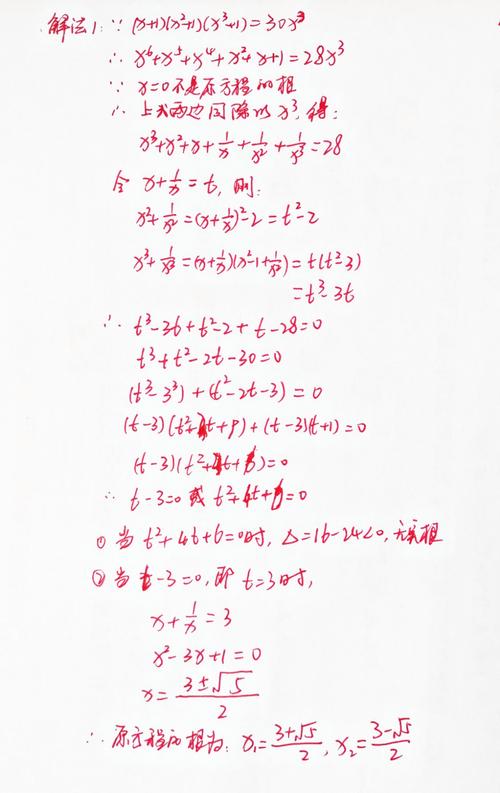 解法1: ∵ (x+1)(x²+1)(x³+1)=30x³
∴ x⁶+x⁵+x⁴+x²+x+1=28x³
∵ x=0不是原方程的根
∴ 上式两边同除以x³,得:
x³+x²+x+1/x+1/x²+1/x³=28
令 x+1/x=t, 则:
x²+1/x²=(x+1/x)²-2=t²-2
x³+1/x³=(x+1/x)(x²-1+1/x²)=t(t²-3)
=t³-3t
∴ t³-3t+t²-2+t-28=0
t³+t²-2t-30=0
(t³-3³)+(t²-2t-3)=0
(t-3)(t²+3t+9)+(t-3)(t+1)=0
(t-3)(t²+4t+6)=0
∴ t-3=0 或 t²+4t+6=0
① 当 t²+4t+6=0时, Δ=16-24<0, 无实根
② 当 t-3=0, 即 t=3时,
x+1/x=3
x²-3x+1=0
x=(3±√5)/2
∴ 原方程的根为: x₁=(3+√5)/2, x₂=(3-√5)/2